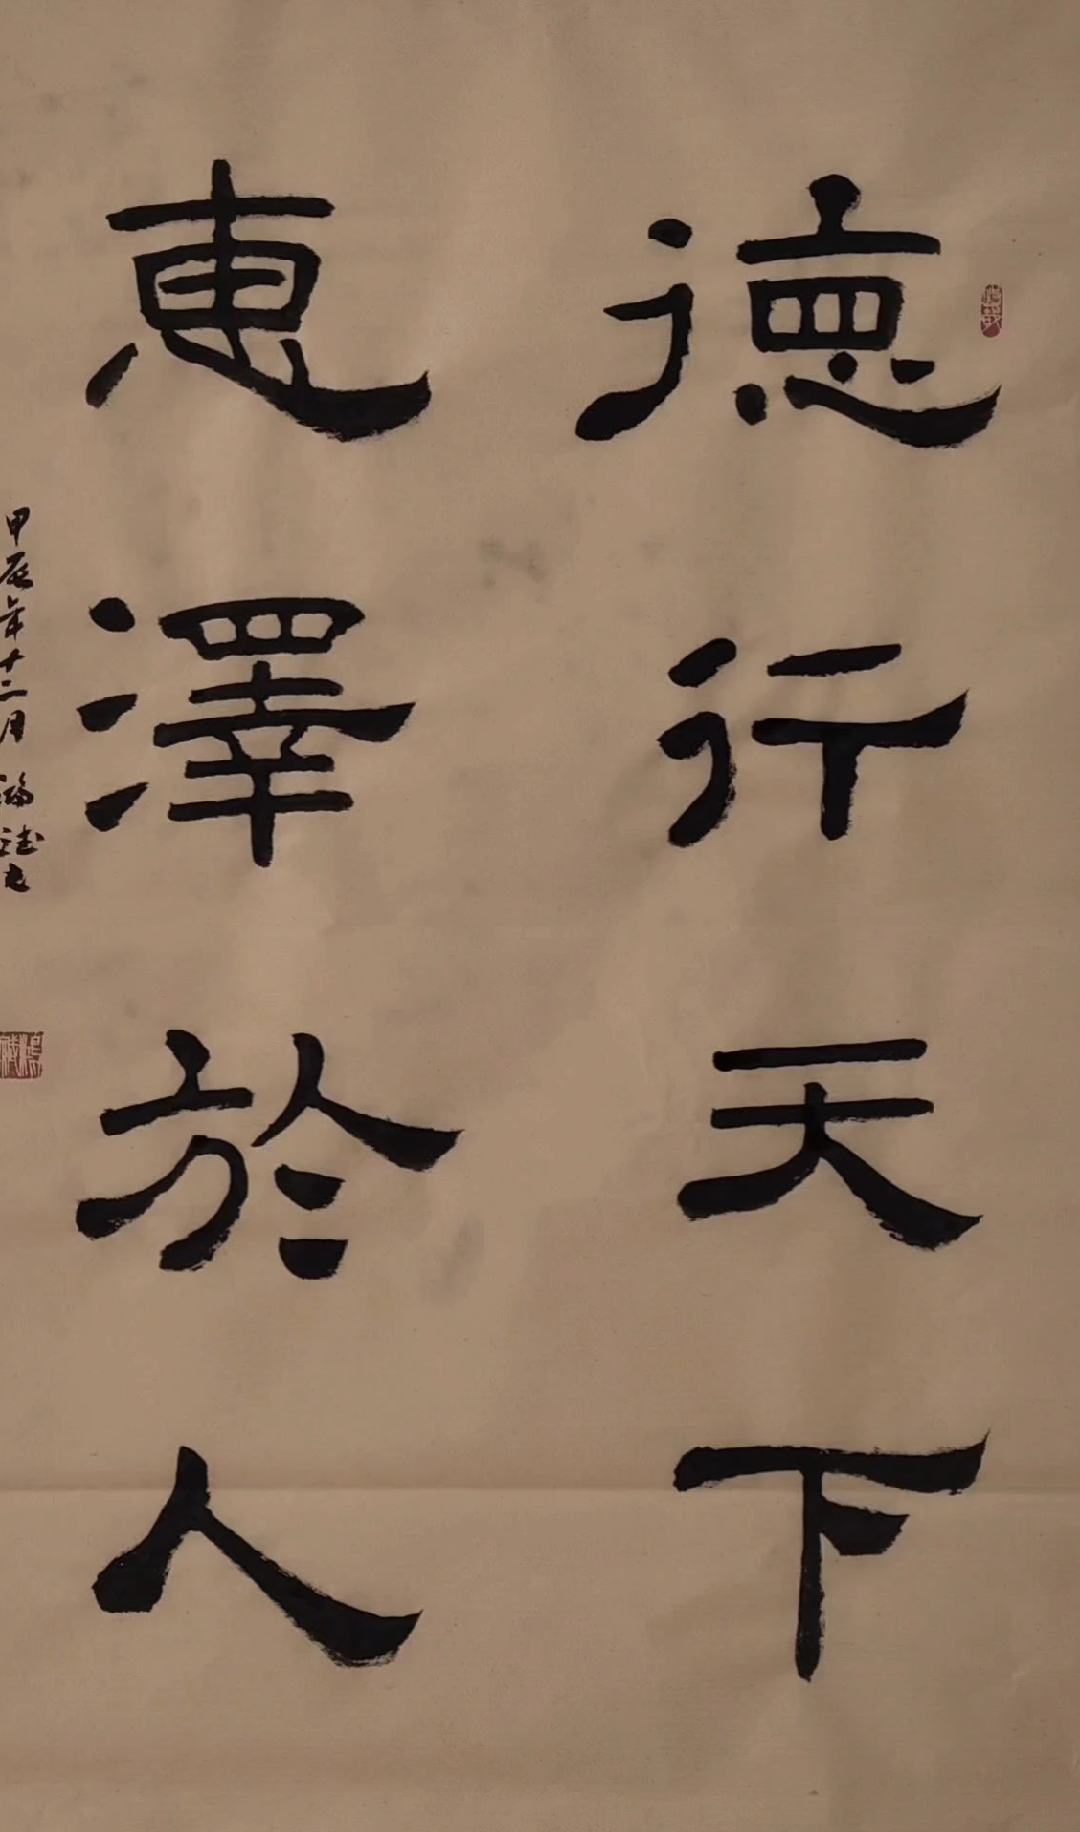 德行天下
惠澤於人
甲辰年十二月